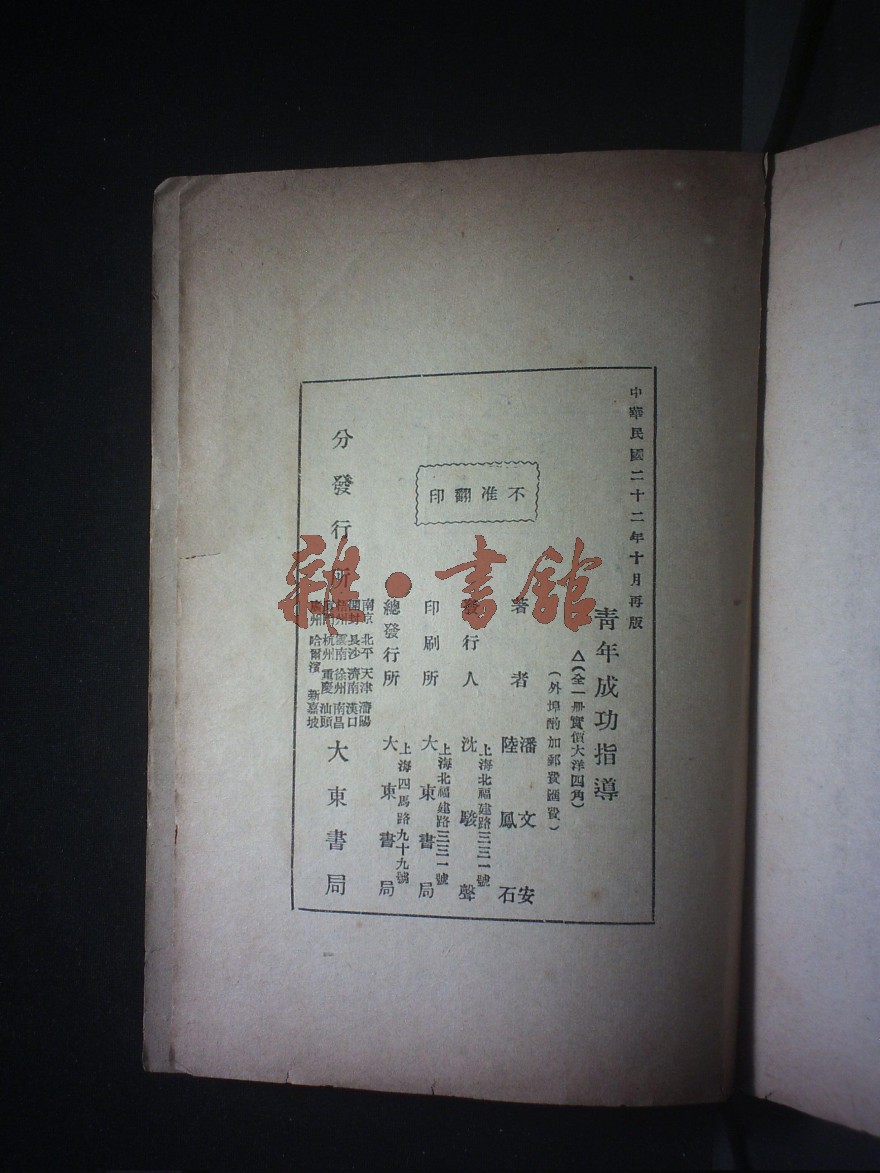 中華民國二十二年十月再版
青年成功指導
△(全一册實價大洋四角)
(外埠酌加郵費匯費)
不准翻印
著者 潘文安
陸鳳石
發行人 上海北福建路三三一號
沈駿聲
印刷所 上海北福建路三三一號
大東書局
總發行所 上海四馬路九十九號
大東書局
分發行所
南京 北平 天津 瀋陽
開封 長沙 濟南 漢口
梧州 雲南 徐州 南昌
廈門 杭州 重慶 汕頭
廣州 哈爾濱 新嘉坡
大東書局
雜·書館